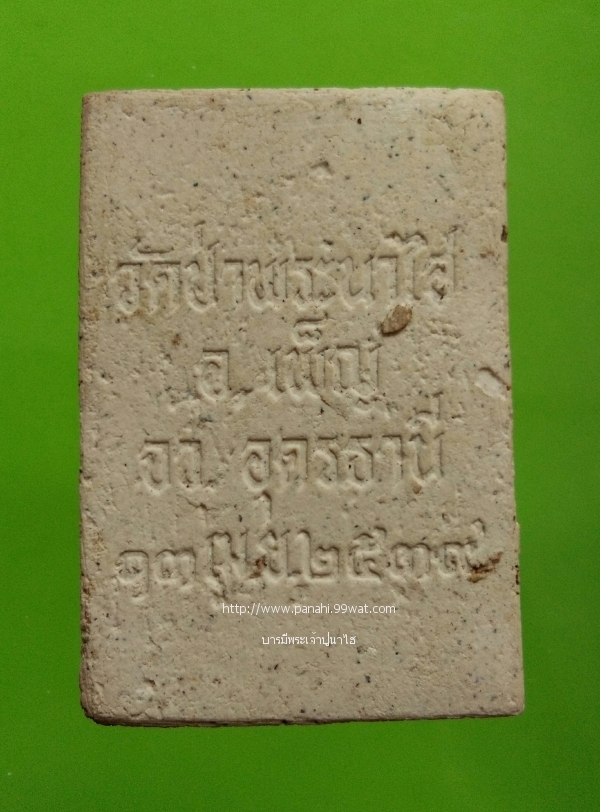 วัดป่าพระนาไฮ
อ. เพ็ญ
จว. อุดรธานี
๑๓ เม.ย. ๒๕๓๙
http://www.panahi.99wat.com
บารมีพระเจ้าปู่นาไฮ